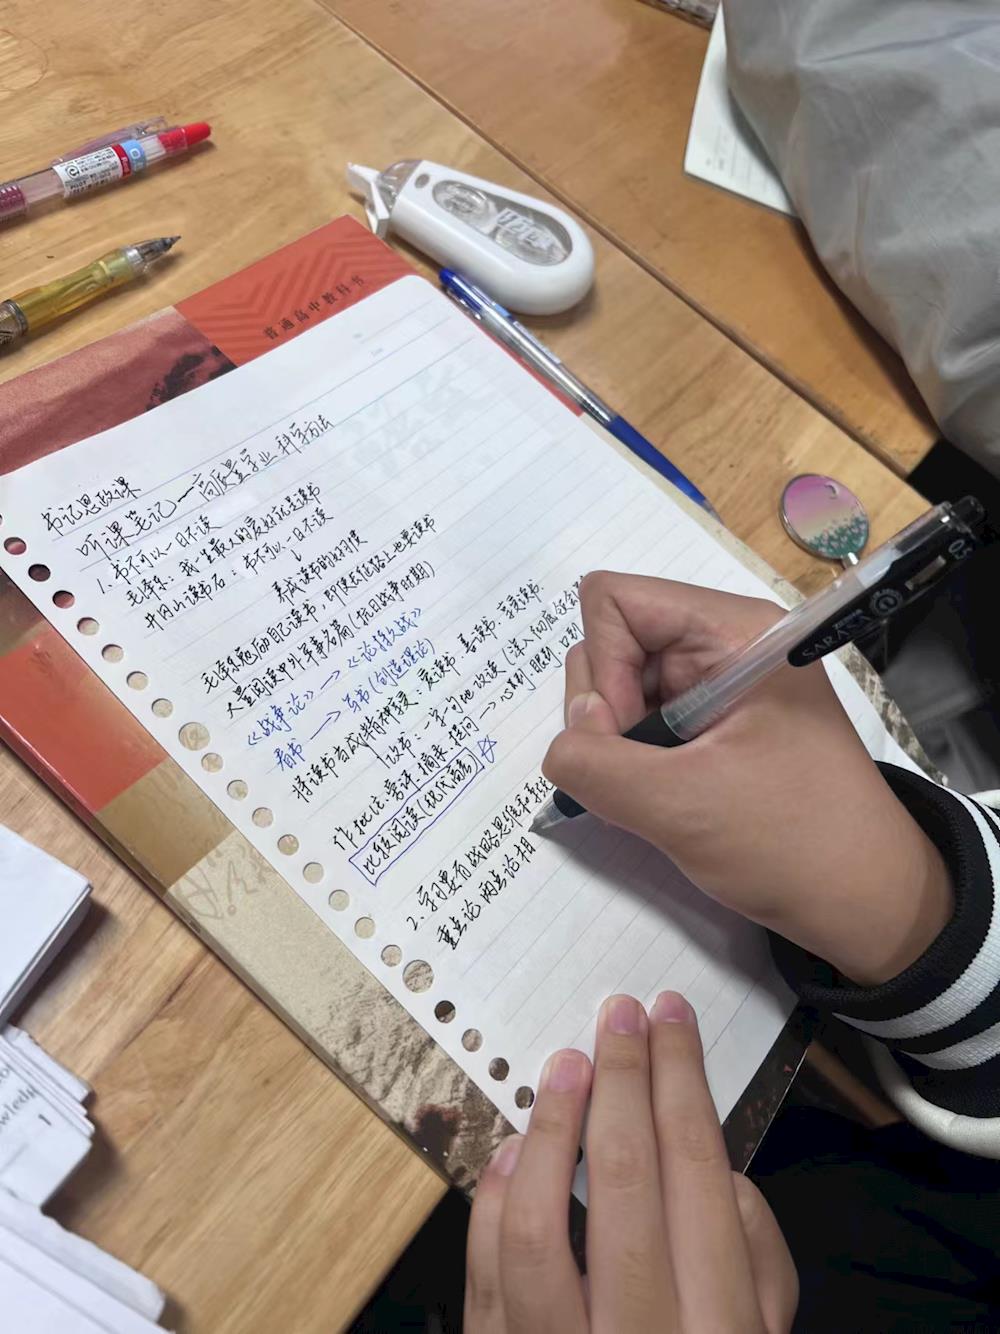 普通高中教科书
书记思政课
听课笔记——高质量学业科学方法
1. 书不可以一日不读
毛泽东：我一生最大的爱好就是读书
井冈山读书石：书不可以一日不读
↓
养成读书的好习惯
毛泽东勉励自己读书，即使长征路上也要读书
大量阅读中外军事名篇（抗日战争时期）
《战争论》→《论持久战》
看书 → 写书（创造理论）
将读书当成精神享受：爱读书、喜读书、享受读书
攻书：一字一句地攻读（深入彻底
作批注：旁评、摘录、提词 → 心到、眼到、口到
比较阅读（现代商鞅）
2. 学习要有战略思维和系统
重点论 两点论相
SARASA